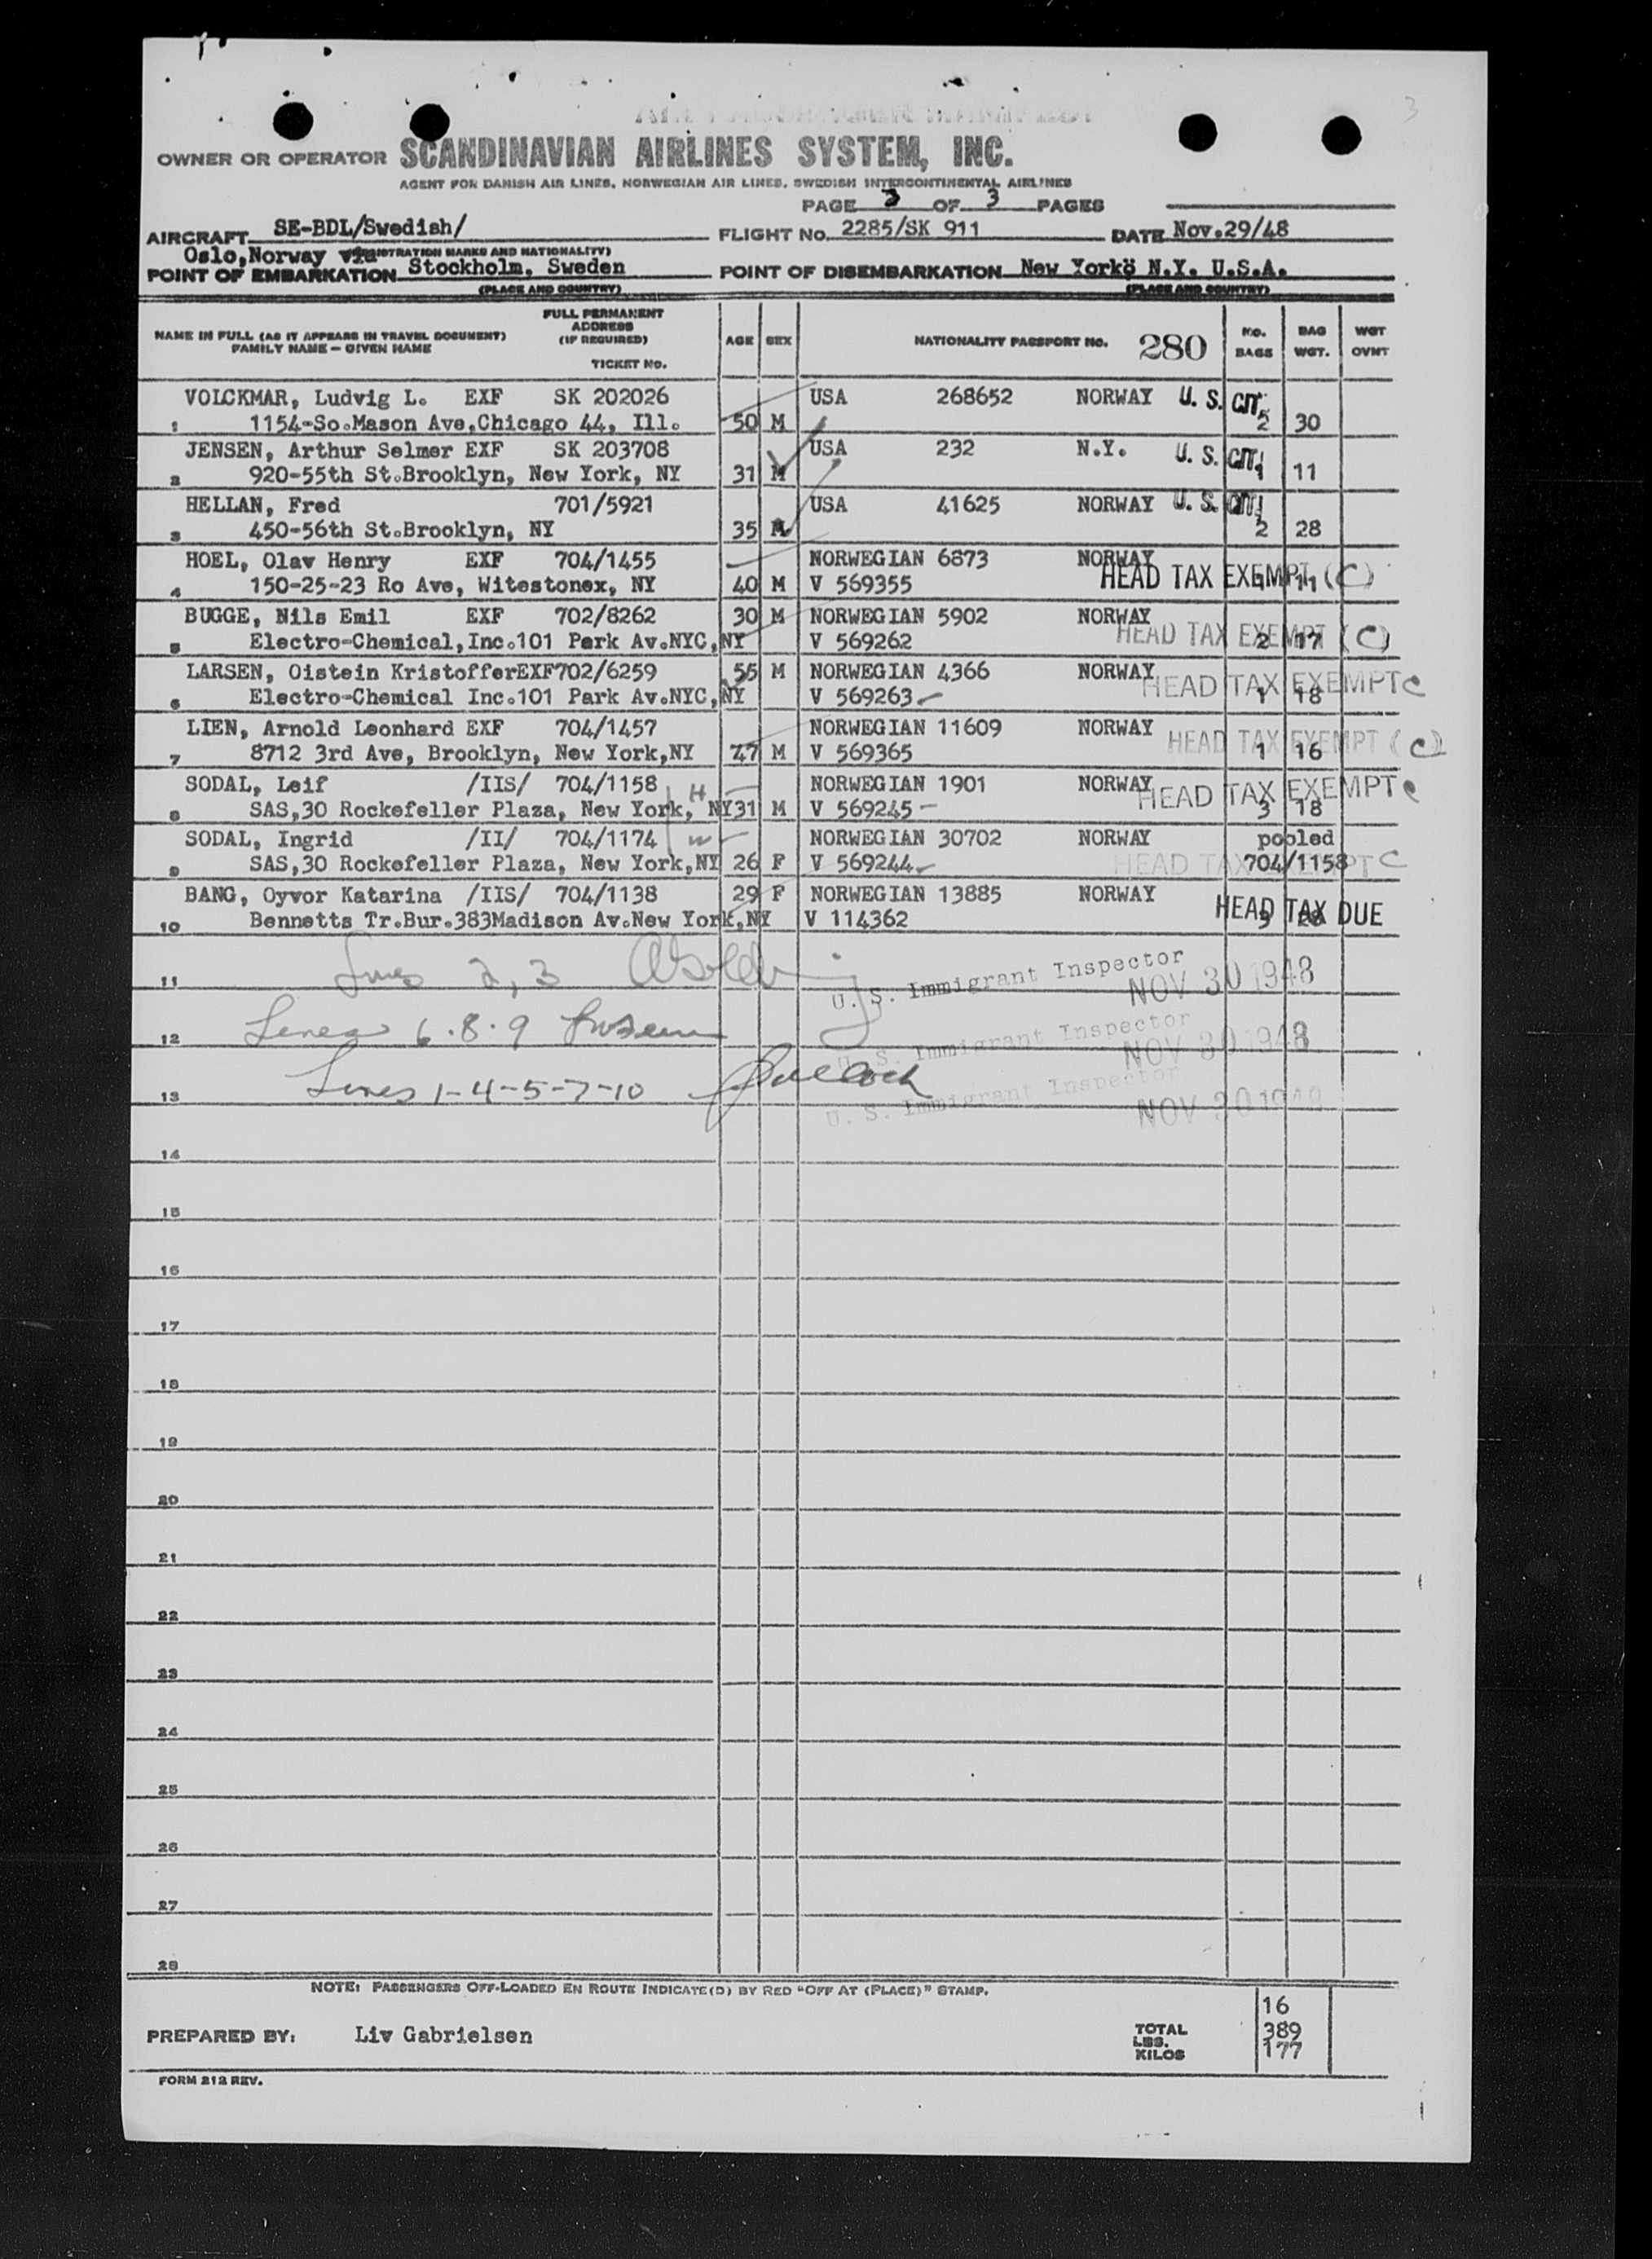 3
OWNER OR OPERATOR SCANDINAVIAN AIRLINES SYSTEM, INC.
AGENT FOR DANISH AIR LINES, NORWEGIAN AIR LINES, SWEDISH INTERCONTINENTAL AIRLINES
PAGE 3 OF 3 PAGES
AIRCRAFT SE-BDL/Swedish/ FLIGHT No. 2285/SK 911 DATE Nov.29/48
Oslo,Norway via (REGISTRATION MARKS AND NATIONALITY)
POINT OF EMBARKATION Stockholm, Sweden POINT OF DISEMBARKATION New Yorkö N.Y. U.S.A.
(PLACE AND COUNTRY) (PLACE AND COUNTRY)
NAME IN FULL (AS IT APPEARS IN TRAVEL DOCUMENT) FAMILY NAME – GIVEN NAME
FULL PERMANENT ADDRESS (IF REQUIRED) TICKET No.
AGE SEX NATIONALITY PASSPORT No. 280 No. BAGS BAG WGT. WGT OVNT
VOLCKMAR, Ludvig L. EXF SK 202026 USA 268652 NORWAY U. S. CIT.
1 1154-So.Mason Ave,Chicago 44, Ill. 50 M 2 30
JENSEN, Arthur Selmer EXF SK 203708 USA 232 N.Y. U. S. CIT.
2 920-55th St.Brooklyn, New York, NY 31 M 1 11
HELLAN, Fred 701/5921 USA 41625 NORWAY U. S. CIT.
3 450-56th St.Brooklyn, NY 35 M 2 28
HOEL, Olav Henry EXF 704/1455 NORWEGIAN 6873 NORWAY
4 150-25-23 Ro Ave, Witestonex, NY 40 M V 569355 HEAD TAX EXEMPT (C) 1 11
BUGGE, Nils Emil EXF 702/8262 30 M NORWEGIAN 5902 NORWAY
5 Electro-Chemical,Inc.101 Park Av.NYC,NY V 569262 HEAD TAX EXEMPT (C) 2 17
LARSEN, Oistein KristofferEXF702/6259 55 M NORWEGIAN 4366 NORWAY
6 Electro-Chemical Inc.101 Park Av.NYC,NY V 569263 HEAD TAX EXEMPT C 1 18
LIEN, Arnold Leonhard EXF 704/1457 NORWEGIAN 11609 NORWAY
7 8712 3rd Ave, Brooklyn, New York,NY 47 M V 569365 HEAD TAX EXEMPT (C) 1 16
SODAL, Leif /IIS/ 704/1158 H NORWEGIAN 1901 NORWAY
8 SAS,30 Rockefeller Plaza, New York, NY31 M V 569245 HEAD TAX EXEMPT C 3 18
SODAL, Ingrid /II/ 704/1174 w NORWEGIAN 30702 NORWAY pooled
9 SAS,30 Rockefeller Plaza, New York,NY 26 F V 569244 HEAD TAX EXEMPT C 704/1158
BANG, Oyvor Katarina /IIS/ 704/1138 29 F NORWEGIAN 13885 NORWAY
10 Bennetts Tr.Bur.383Madison Av.New York,NY V 114362 HEAD TAX DUE 3 28
11 Lines 2,3 U. S. Immigrant Inspector NOV 30 1948
12 Lines 6.8.9 U. S. Immigrant Inspector NOV 30 1948
13 Lines 1-4-5-7-10 U. S. Immigrant Inspector NOV 30 1948
14
15
16
17
18
19
20
21
22
23
24
25
26
27
28
NOTE: PASSENGERS OFF-LOADED EN ROUTE INDICATE(D) BY RED "OFF AT (PLACE)" STAMP.
16
PREPARED BY: Liv Gabrielsen TOTAL LBS. 389
KILOS 177
FORM 212 REV.